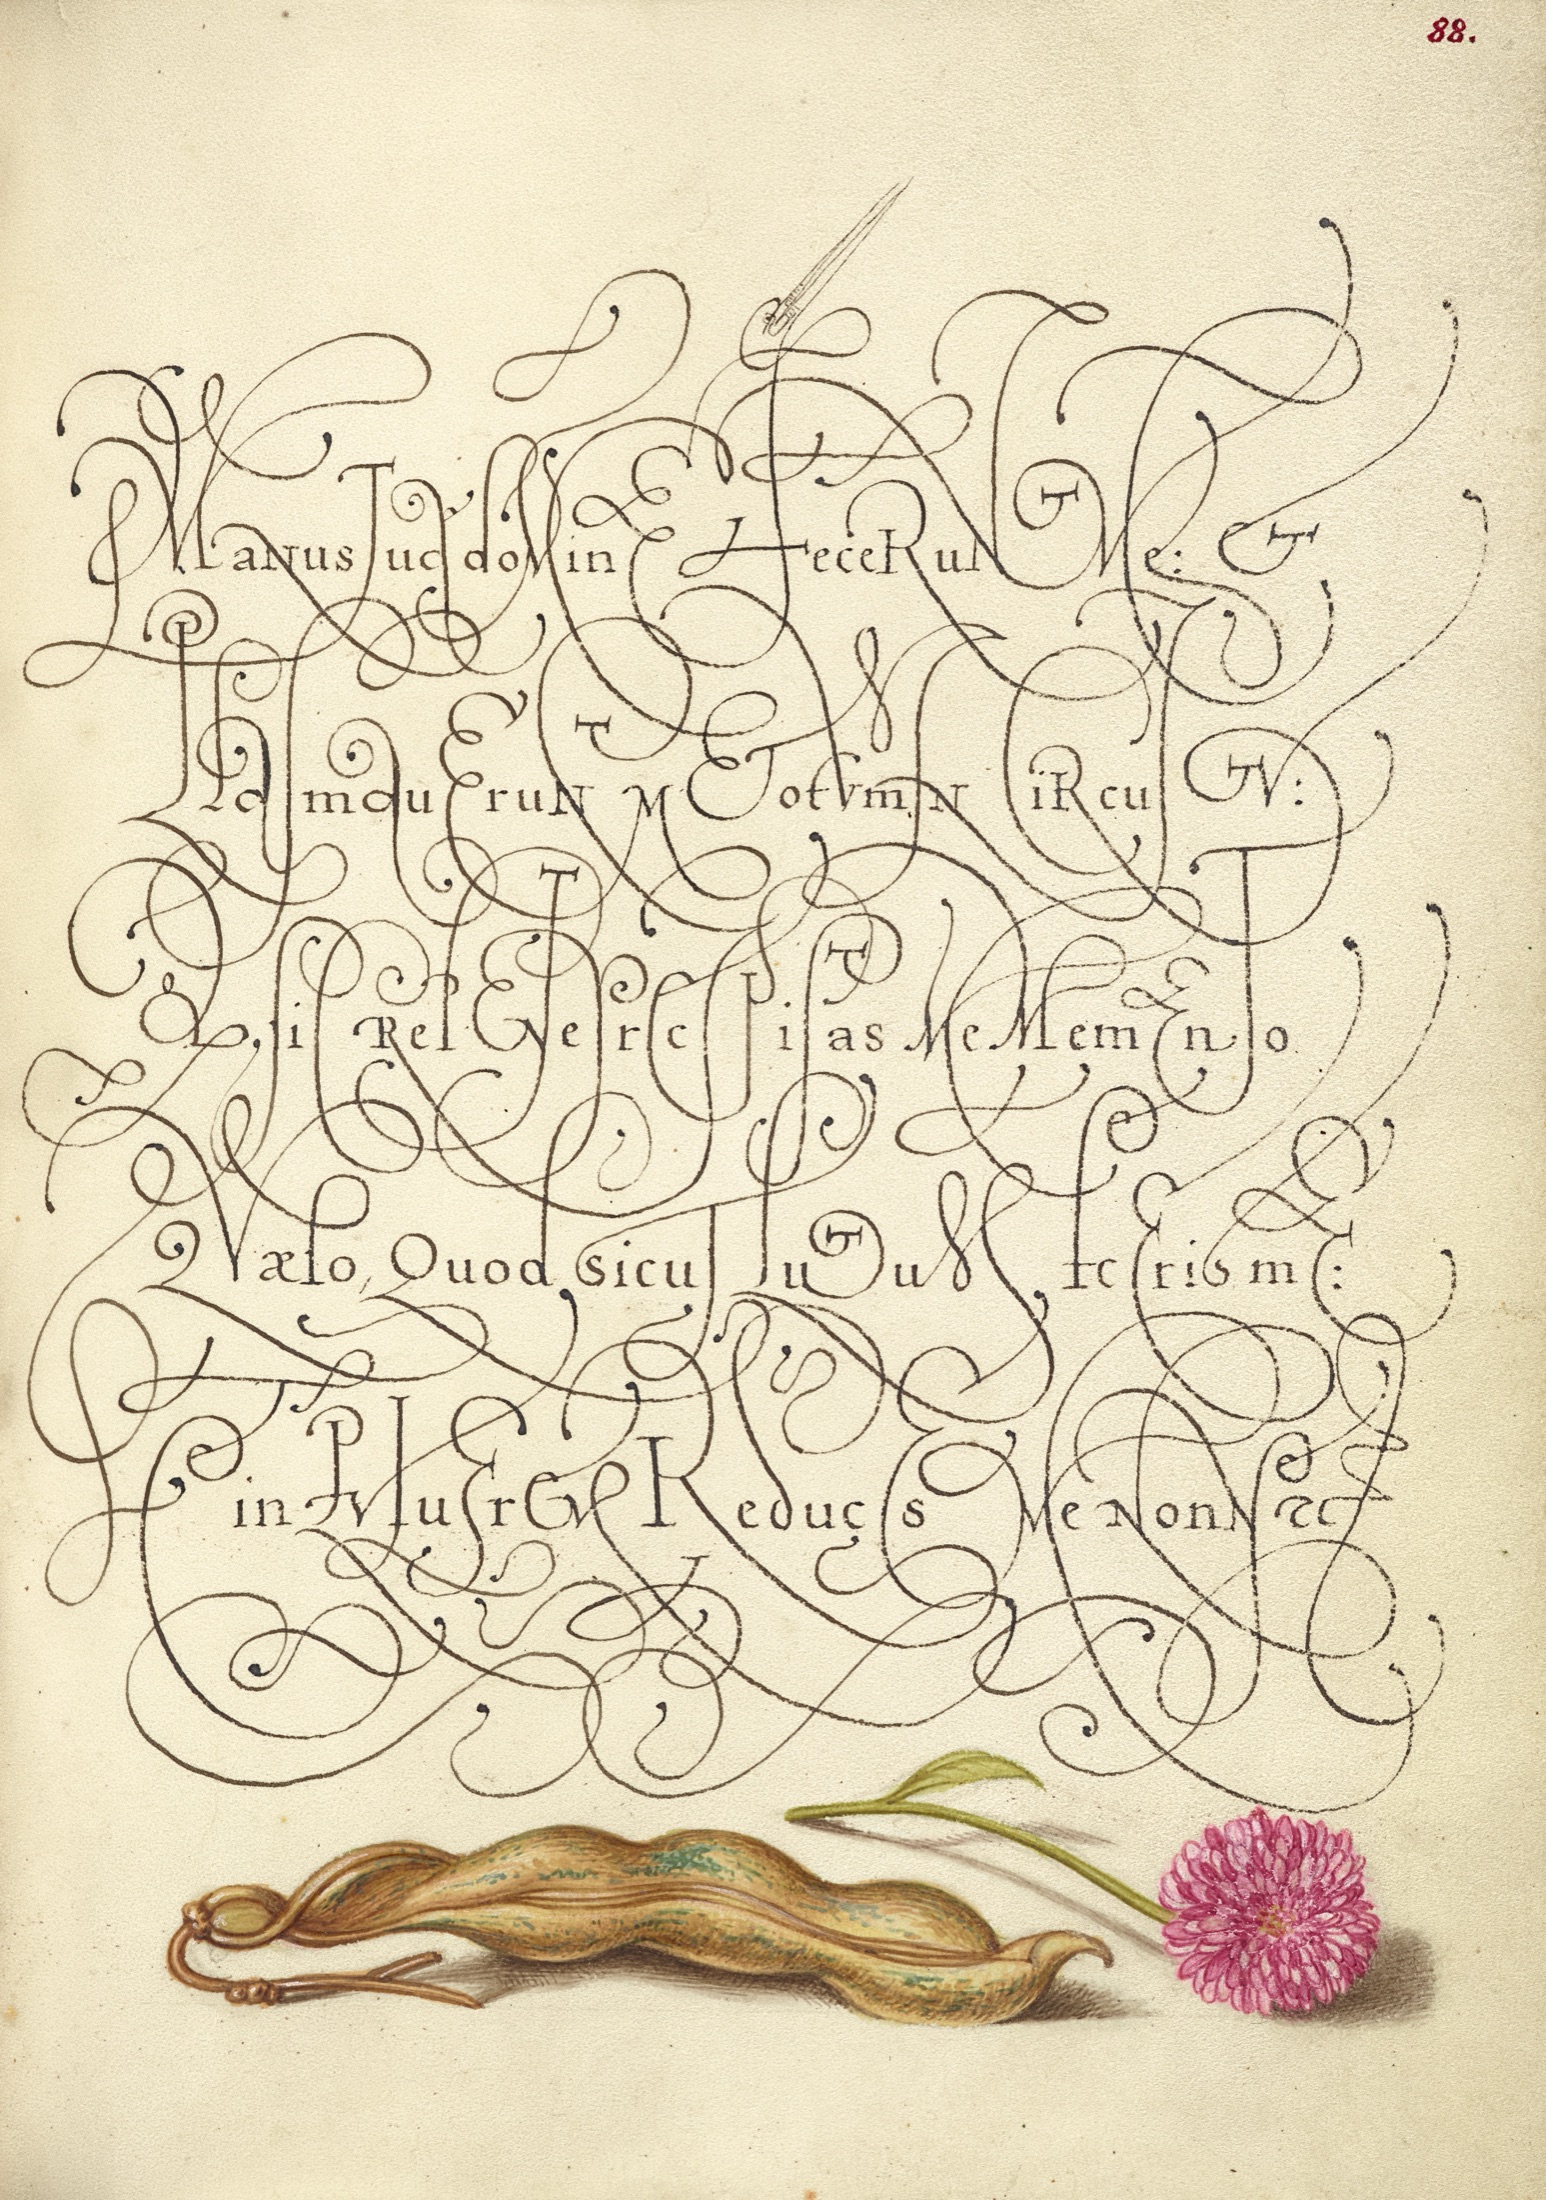 88.
Manus Tuæ doMinE FeceRuNT Me: ET
PlasmaveruNT ME ToTVm iN CiRcuiTV:
Et Sic RepEnTe præcipitas Me MemEnTo
Quæso, Quod sicut LuTuM fecEris mE:
Et in PVlvErEM Reduces Me Nonne